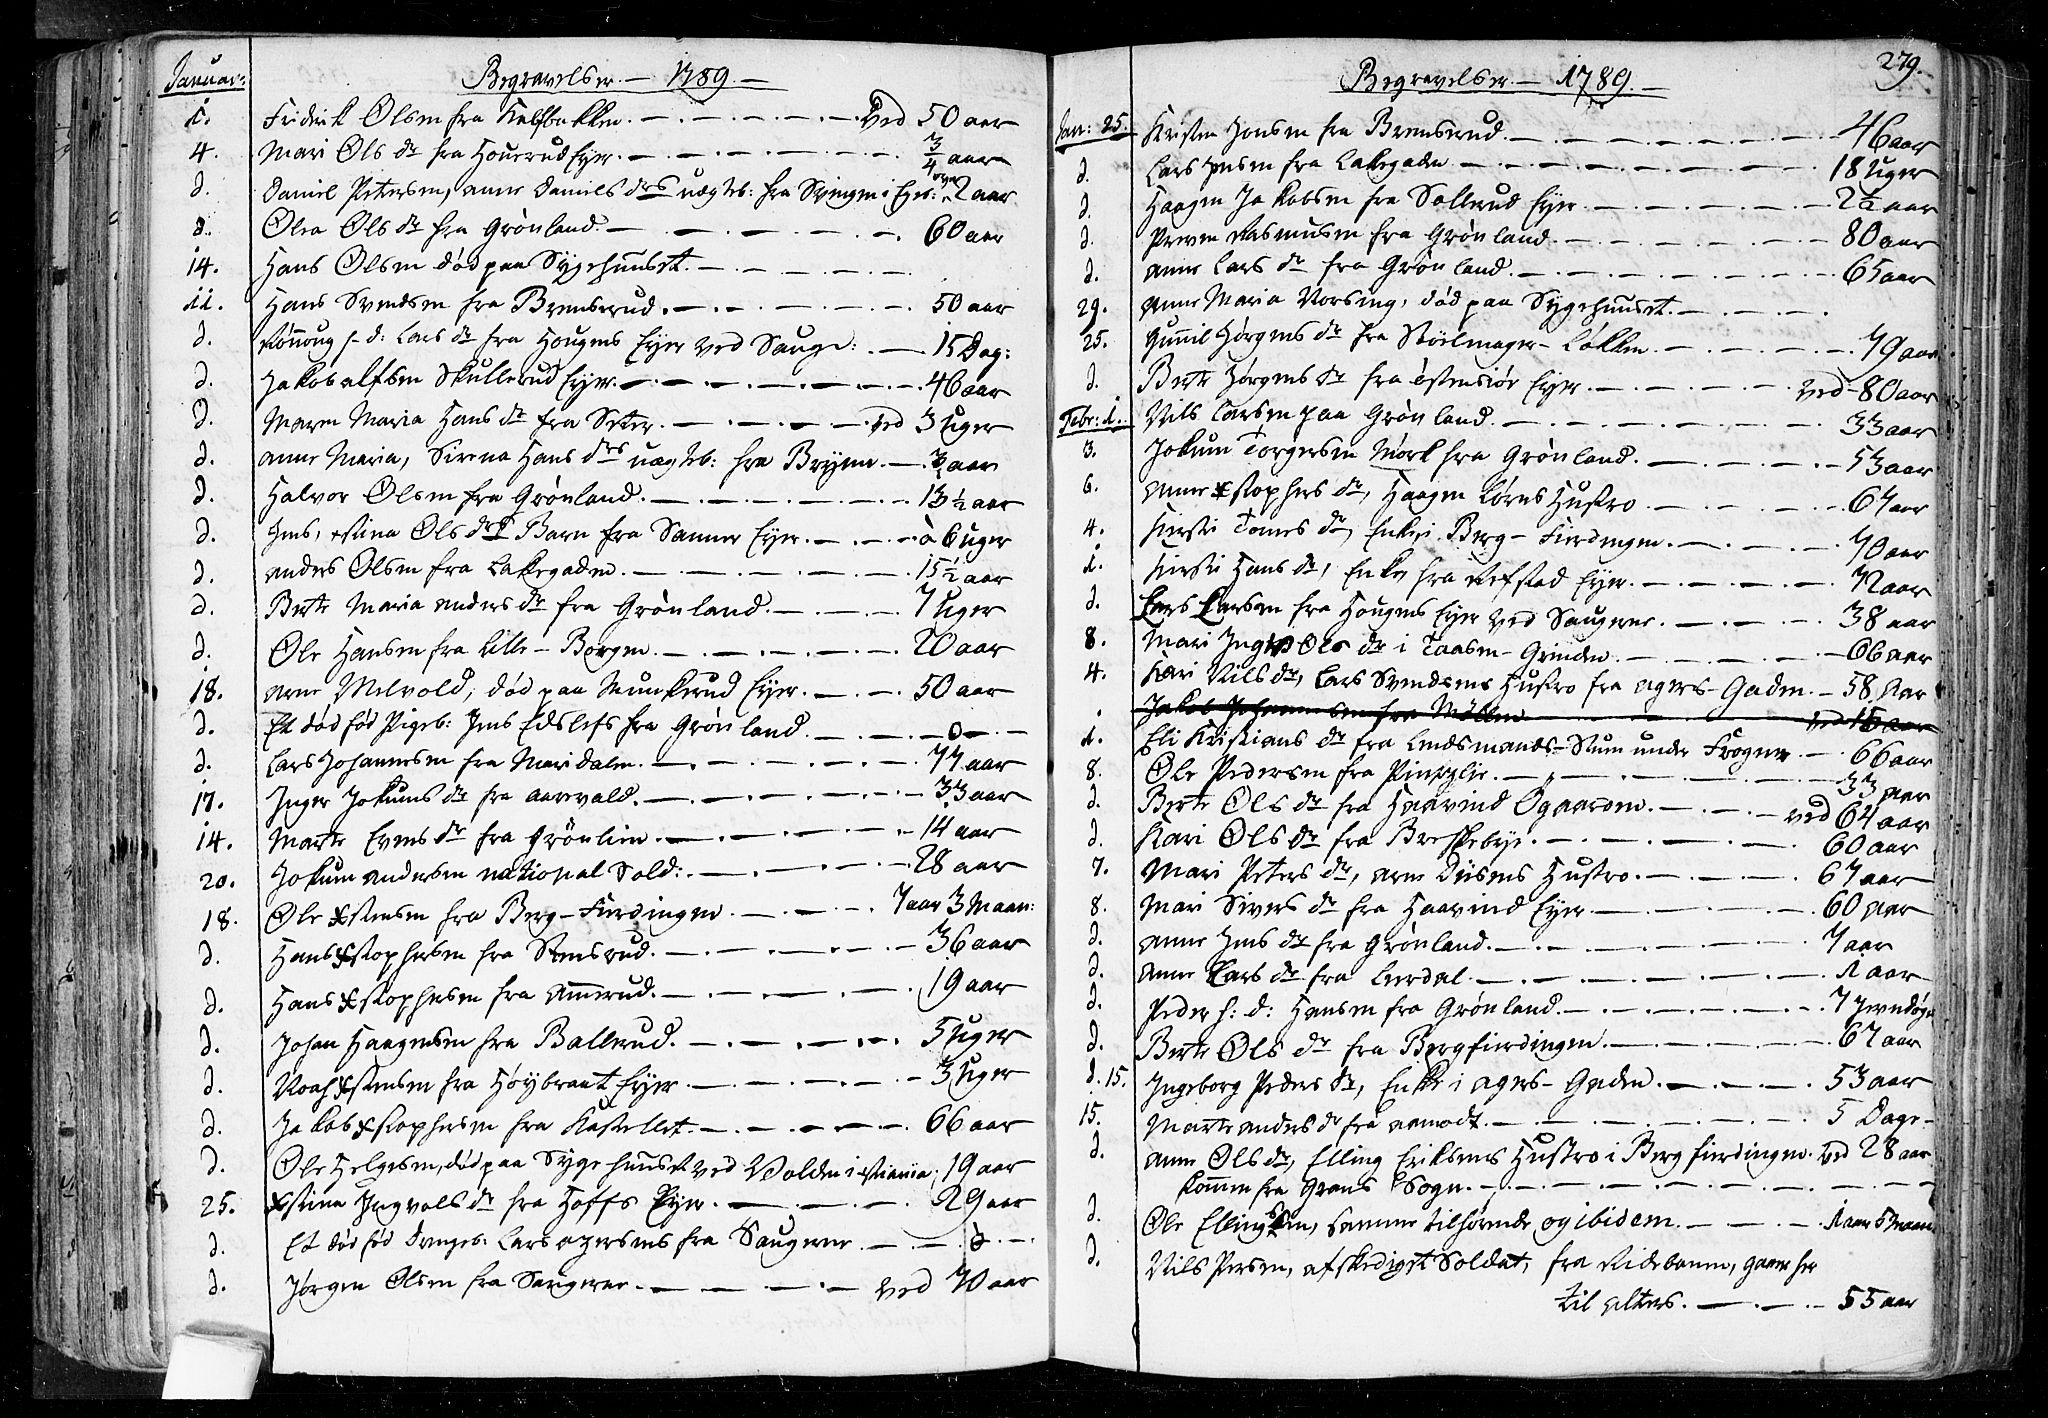 Januar:
Begravelser. — 1789. —
1. Fridrik Olsen fra Kalfbakken. — ved 50 aar
4. Mari Ols dr fra Houerud Eyer. — 3/4 aar
d. Daniel Petersen, anne Daniels drs uægteb: fra Svingen i Eger: 2 aar
8. Olea Ols dr fra Grønland. — 60 aar
14. Hans Olsen død paa Sygehuuset. —
11. Hans Svendsen fra Brenserud. — 50 aar
d. Rønnoug h. d: Lars dr fra Hougens Eyer ved Sauge: — 15 Dag:
d. Jakob alfsen Skullerud Eyer. — 46 aar
d. Maren Maria Hans dr fra Seter. — ved 3 Uger
d. anne Maria, Sirena Hans drs uægteb: fra Bryen. — 3 aar
d. Halvor Olsen fra Grønland. — 13 1/2 aar
d. Jens, xstina Ols drs Barn fra Sanner Eyer. — à 6 uger
d. anders Olsen fra Lakegaden. — 15 1/2 aar
d. Berte Maria anders dr fra Grønland. — 7 Uger
d. Ole Hansen fra Lille-Borgen. — 20 aar
18. arne Melvold, død paa Munkerud Eyer. — 50 aar
d. Et død fød Pigeb: Jens Edslefs fra Grønland. — 0 —
d. Lars Johannesen fra Maridalen. — 77 aar
17. Inger Jokums dr fra aarvold. — 33 aar
14. Marte Evens dr fra Grönlien. — 14 aar
20. Jokum andersen national Sold: — 28 aar
18. Ole Xstensen fra Berg-Fierdingen. — 7 aar 3 Maan:
d. Hans Xstophersen fra Stensrud. — 36 aar
d. Hans Xstophersen fra Ammerud. — 19 aar
d. Johan Haagensen fra Ballerud. — 5 Uger
d. Noah Xstensen fra Høybraat Eyer. — 3 Uger
d. Jakob Xstophersen fra Kastellet. — 66 aar
d. Ole Helgesen, død paa Sygehuuset ved Volden i xstiania, 19 aar
25. Xstina Ingvals dr fra Hoffs Eyer. — 29 aar
d. Et død fød Drengeb: Lars agersens fra Saugerne. — 0 —
d. Jørgen Olsen fra Saugerne. — ved 70 aar
279.
Begravelser. — 1789. —
Jan: 25. Kristen Hansen fra Brenserud. — 46 aar
d. Lars Jensen fra Lakegaden. — 18 Uger
d. Haagen Jakobsen fra Sollerud Eyer. — 2 1/2 aar
d. Preven Rasmusen fra Grønland. — 80 aar
d. anne Lars dr fra Grønland. — 65 aar
29. anne Maria Vorsing, død paa Sygehuuset. —
25. Gunnil Jørgens dr fra Stöilmager-Løkken. — 79 aar
d. Berte Jørgens dr fra Østensiør Eyer. — ved 80 aar
Febr: 1. Nils Larsen paa Grønland. — 33 aar
3. Jokum Torgersen Mørk fra Grønland. — 53 aar
6. anne Xstophers dr, Haagen Lørns Hustro — 67 aar
4. Kirsti Tomes dr, Enke i Berg-Fierdingen. — 70 aar
1. Kirsti Hans dr, Enke, fra Refstad Eyer. — 72 aar
d. Lars Larsen fra Hougens Eyer ved Saugerne. — 38 aar
8. Mari Ols dr i Taasen-Grinden. — 66 aar
4. Kari Nils dr, Lars Svendsens Hustro fra agers-Gaden. — 58 Aar
Jakob Johannesen fra Møllen — ved 15 aar
1. Eli Kristians dr fra Lendsmands-Stuen under Frogner. — 66 aar
8. Ole Pedersen fra Pinslie. — 33 aar
d. Berte Ols dr fra Haavind Ogaarden. — ved 64 aar
d. Kari Ols dr fra Breskebye. — 60 aar
7. Mari Peters dr, arne Diisens Hustro. — 67 aar
8. Mari Sivers dr fra Haavind Eyer — 60 aar
d. anne Jens dr fra Grønland. — 7 aar
d. anne Lars dr fra Leerdal. — 1 aar
d. Peder h: d: Hansen fra Grønland. — 7 Jevndøgn
d. Berte Ols dr fra Bergfierdingen. — 67 aar
d. 15. Ingeborg Peders dr, Enke i agers-Gaden. — 53 aar
15. Marte anders dr fra aamodt. — 5 Dage-
d. anne Ols dr, Elling Eriksens Hustro i Bergfierdingen. ved 28 aar
kommen fra Grans Sogn. —
d. Ole Ellingsen, samme tilhørende og ibidem. — 1 aar 5 maan
d. Nils Persen, afskediget Soldat, fra Ridebanen, gaaer her
til alters. — 55 aar